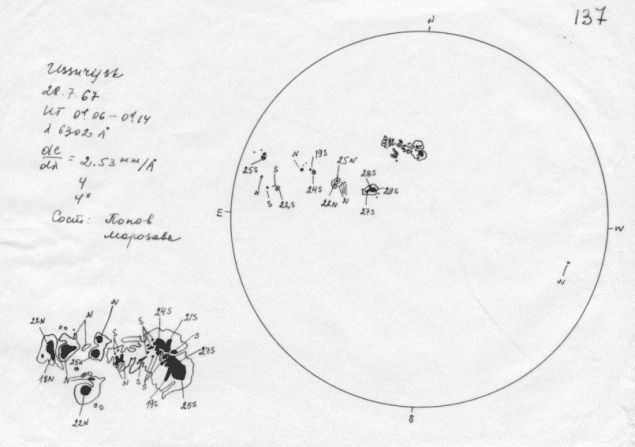 137
Ussurijsk
28.7.67
UT 01 06 – 01 14
λ 6302 Å
dℓ/dλ = 2.53 mm/Å
4
4"
Сост: Попов
Морозова
N
25S
N
19S
24S
25N
28S
29S
27S
22N
N
S
S
22S
N
E
W
N
S
N
N
24S
21S
S
S
27S
18N
25N
N
N
S
S
S
19S
25S
22N